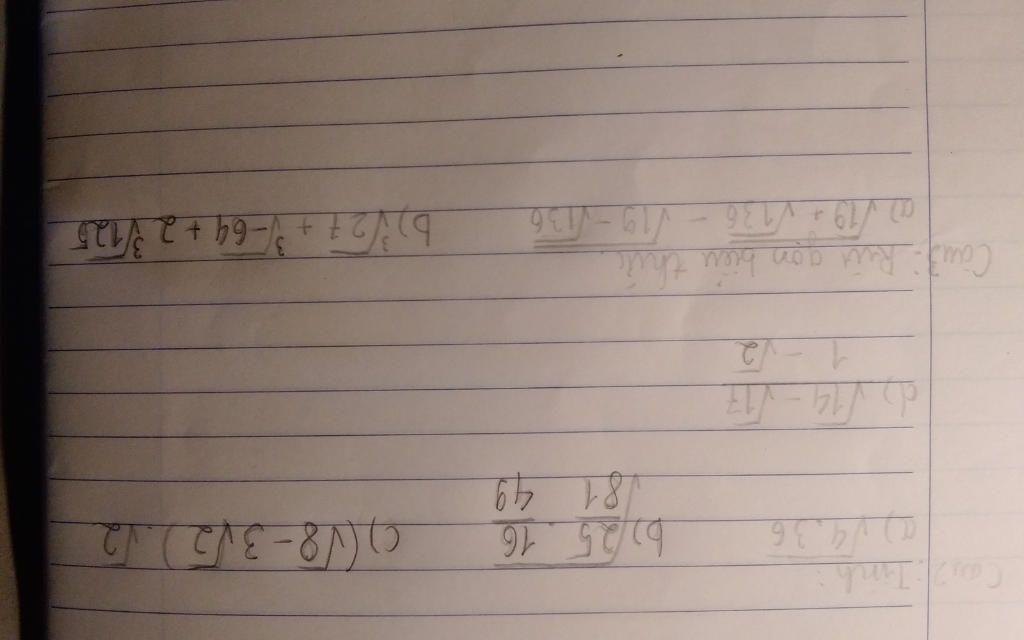 Câu 2: Tính:
a) √4.36 b) √25/81 . 16/49 c) (√8 - 3√2).√2
d) √14 - √17 / 1 - √2
Câu 3: Rút gọn biểu thức.
a) √19 + √136 - √19 - √136 b) ³√27 + ³√-64 + 2 ³√125